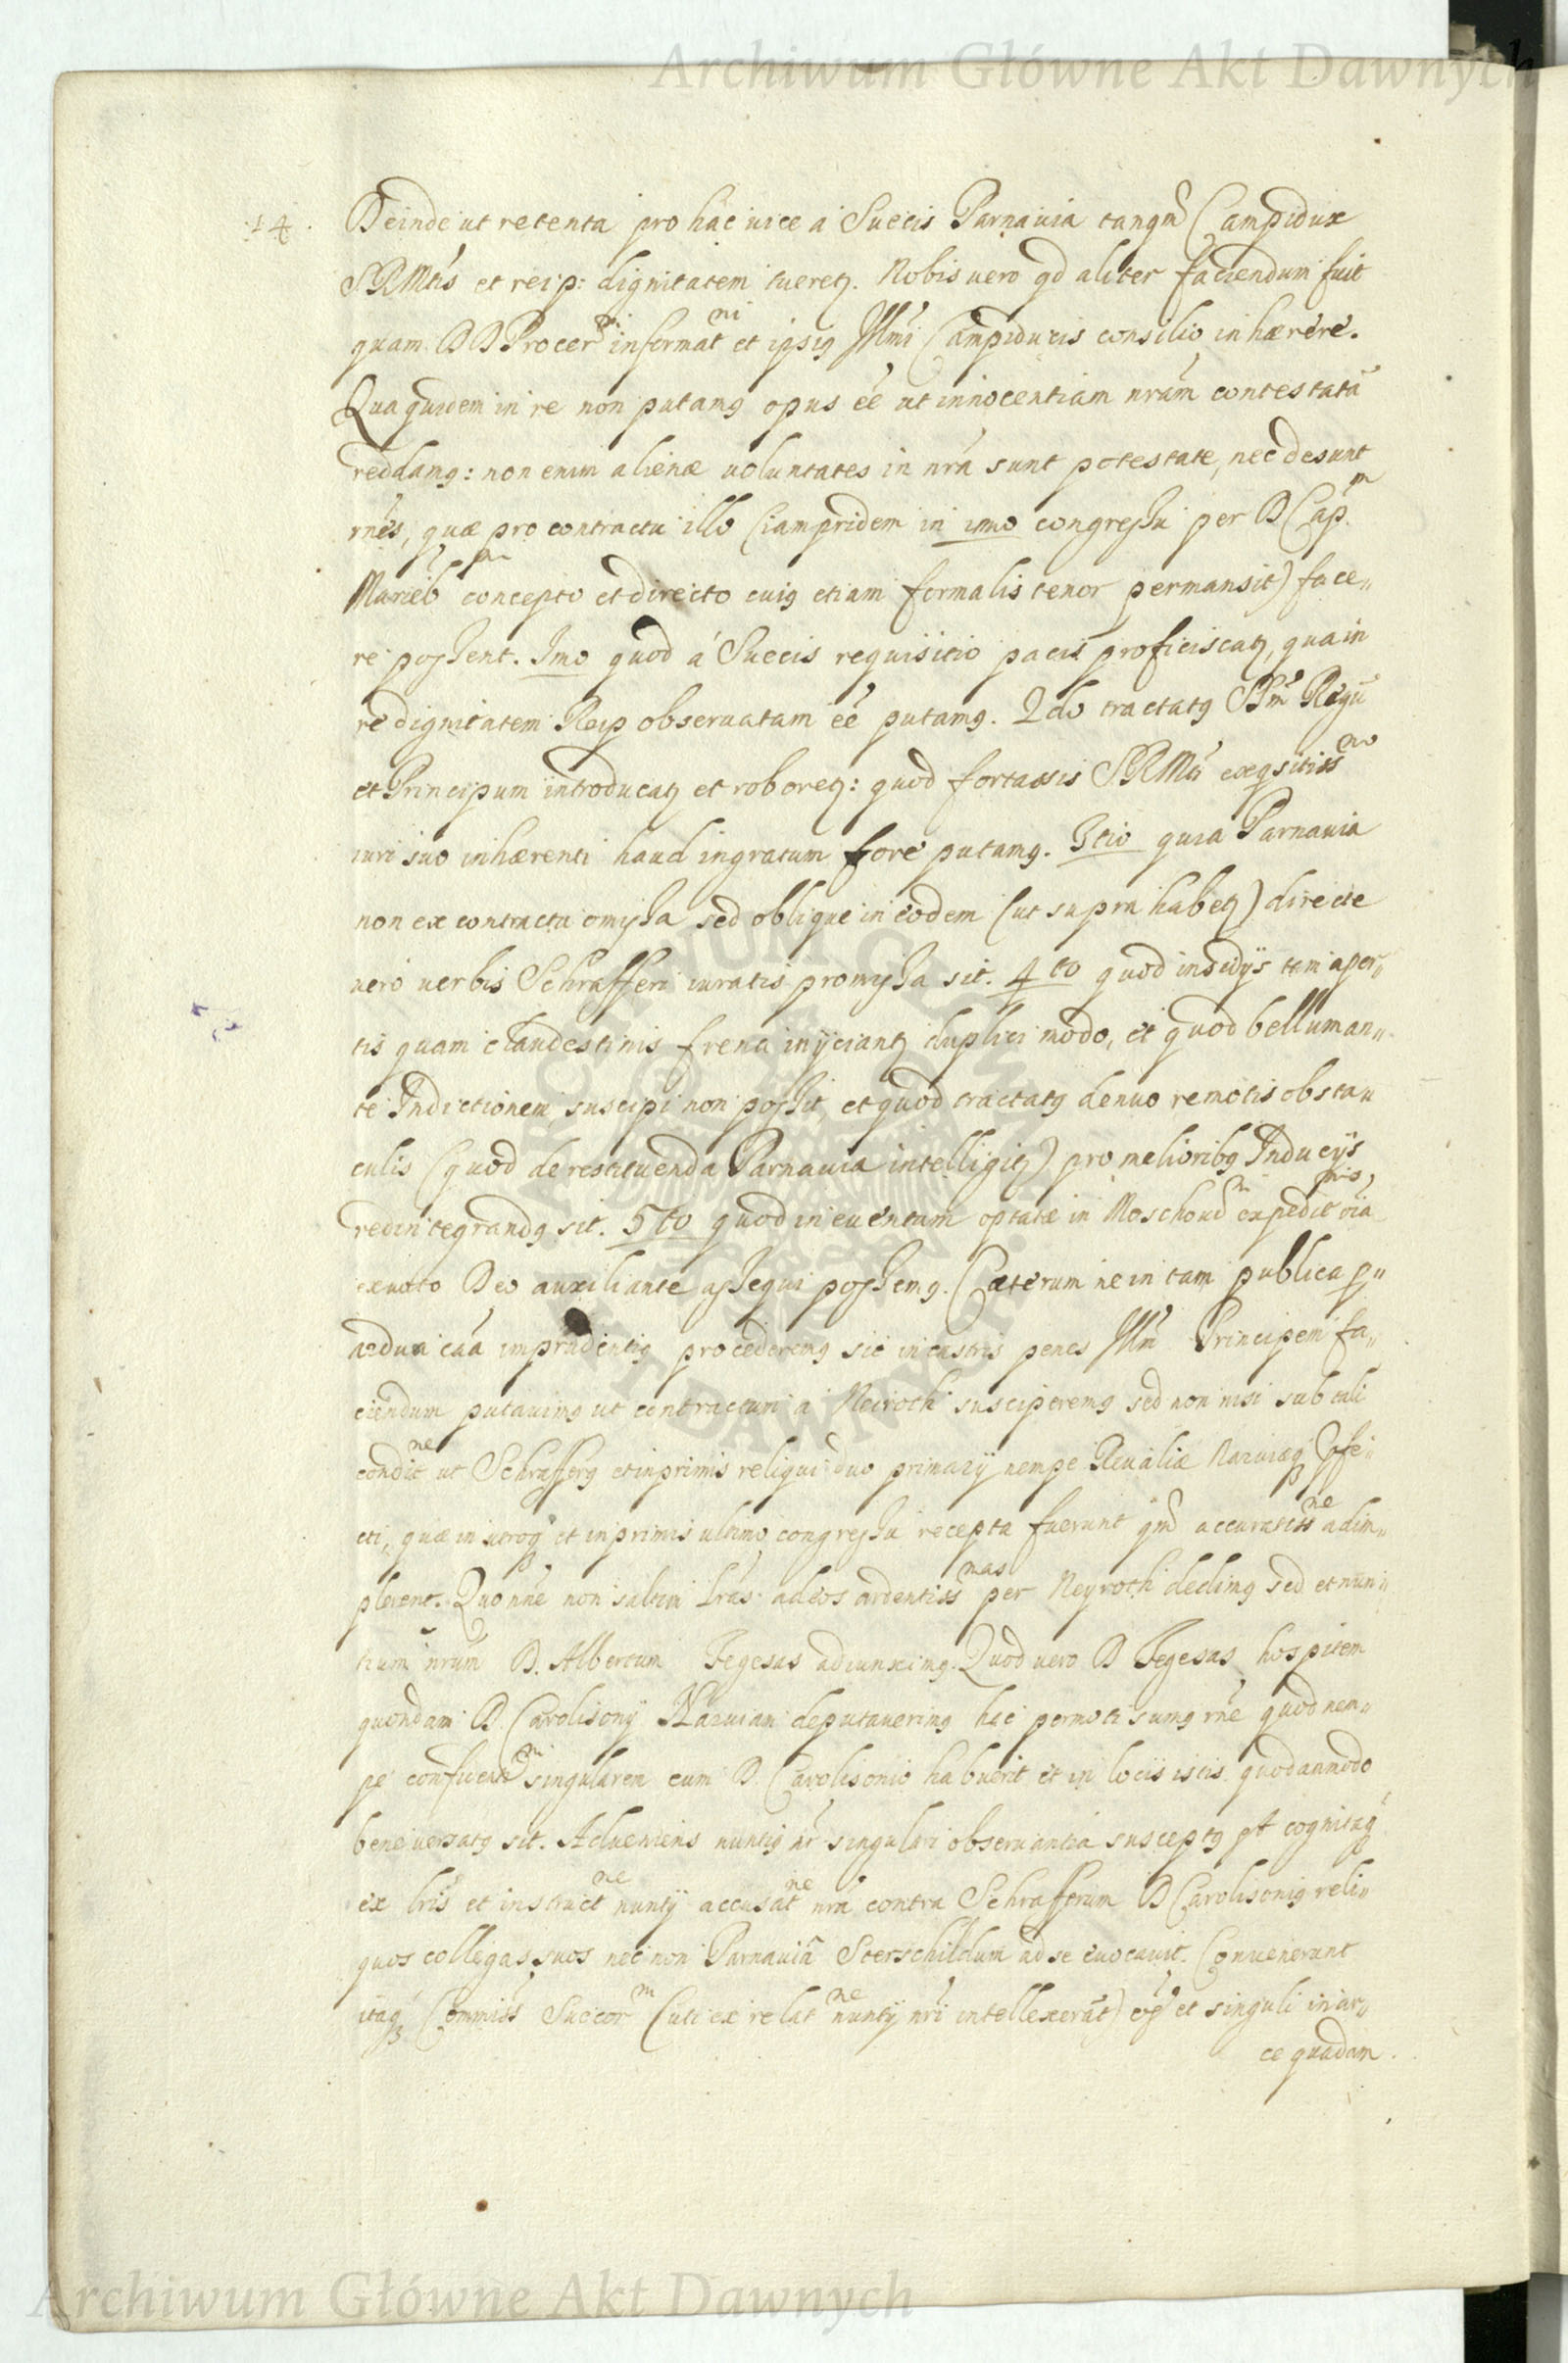 Archiwum Główne Akt Dawnych
14. Deinde ut retenta pro hac uice a Suecis Parnauia tanqm Campidux
SRMtis et reip: dignitatem tueretz. Nobis uero qd aliter faciendum fuit
quam DD Procerm informatni et ipsig Illmi Campiducis consilio inhærere.
Qua quidem in re non putamg opus eé ut innocentiam nram contestatã
reddamg: non enim alienæ uoluntates in nra sunt potestate, nec desunt
rnes, quæ pro contractu illo (iampridem in imo congressu per D Capm
Marieb concepto et directo cuig etiam formalis tenor permansit) face„
re possent. Imo quod á Suecis requisitio pacis proficiscatz, qua in
re dignitatem Reip obseruatam eé putamg. 2do tractatg Regũ
et Principum introducatz et roboretz: quod fortassis SRMti exqsitissmo
iuri suo inhærenti haud ingratum fore putamg. 3tio quia Parnauia
non ex contractu omissa sed oblique in eodem (ut supra habetz) directe
uero uerbis Schrafferi iuratis promissa sit. 4to quod insidijs tam aper„
tis quam clandestinis frena inijciantz duplici modo, et quod bellum an„
te Indictionem suscipi non possit, et quod tractatg denuo remotis obsta„
culis (quod de restituenda Parnauia intelligitz) pro melioribg Inducijs
redintegrandg sit. 5to quod in euentum optatæ in Moschouam expedit
ex uoto Deo auxiliante assequi possemg. Cæterum ne in tam publica
ardua caã procederemg sic in castris penes Illm Principem fa„
ciendum putauimg ut contractum a Neiroth susciperemg sed non nisi sub tali
conditne ut Schrafferg et inprimis reliqui duo primarij nempe Reualiæ Naruæq Præfe„
cti, quæ in utroq et inprimis ultimo congressu recepta fuerunt qm accuratissne adim„
plerent. Quo nne non saltim lras ad eos ardentissmas per Neyroth dedimg sed et nun„
tium nrum D. Albertum Fegesas adiunximg. Quod uero D Fegesas hospitem
quondam D. Carolisonij Naruam deputauerimg hac permoti sumg rne quod nem„
pe singularem cum D. Carolisonio habuerit et in locis istis quodammodo
bene uersatg sit. Adueniens nuntig nr singulari obseruantia susceptg
ex lris et instructne nuntij accusatne nra contra Schrafferum D Carolisonig reli„
quos collegas suos nec non Parnauiã Sterschildum ad se euocauit. Conuenerunt
itaq Commiss Suecorm (uti ex relatne nuntij nri intellexerãt) et singuli in ar„
ce quadam.
Archiwum Główne Akt Dawnych